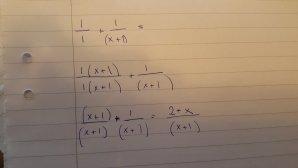 1/1 + 1/(x+1) =
1(x+1)/1(x+1) + 1/(x+1)
(x+1)/(x+1) + 1/(x+1) = 2+x/(x+1)